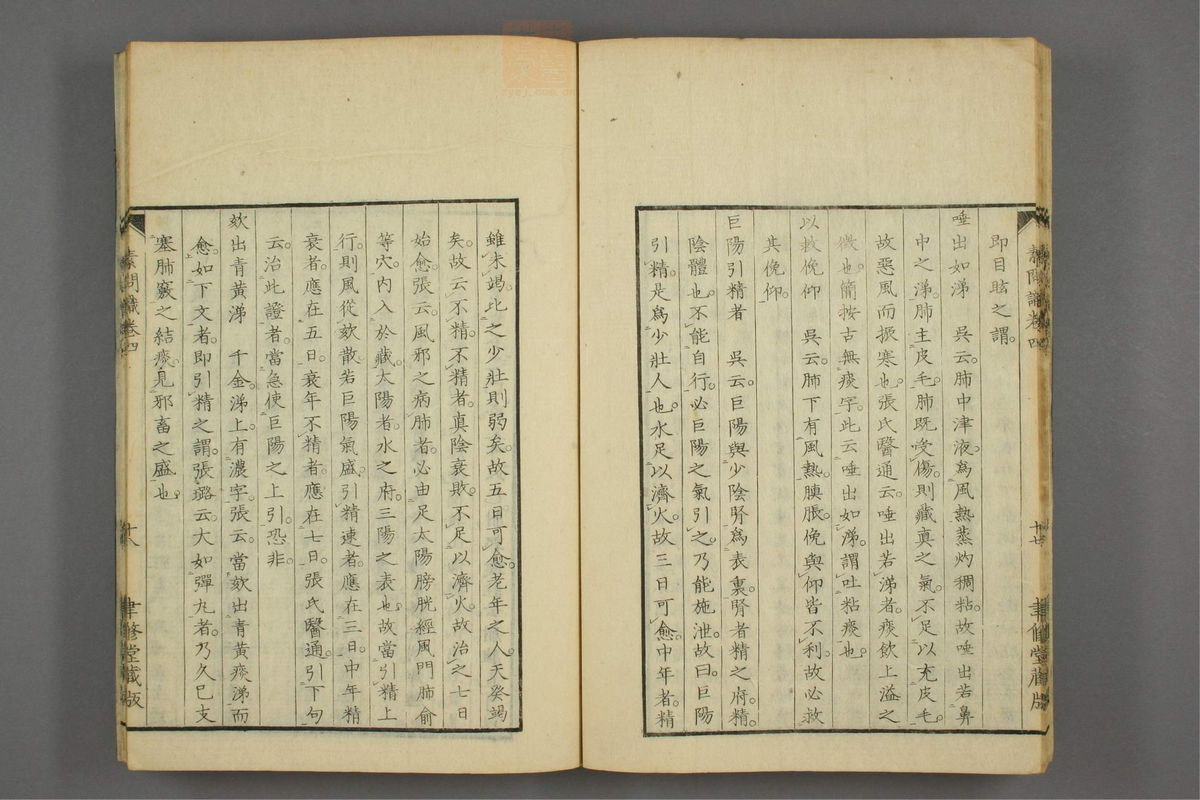 即目眩之謂。
唾出如涕　吳云。肺中津液。爲風熱蒸灼稠粘。故唾出若鼻
中之涕。肺主皮毛。肺既受傷。則藏真之氣。不足以充皮毛。
故惡風而振寒也。張氏醫通云。唾出若涕者。痰飲上溢之
微也。簡按古無痰字。此云唾出如涕。謂吐粘痰也。
以救俛仰　吳云。肺下有風熱。䐜脹。俛與仰皆不利。故必救
其俛仰。
巨陽引精者　吳云。巨陽與少陰腎爲表裏。腎者精之府。精。
陰體也。不能自行。必巨陽之氣引之。乃能施泄。故曰。巨陽
引精。是爲少壯人也。水足以濟火。故三日可愈。中年者。精
素問識卷四
聿修堂藏版
雖未竭。比之少壯則弱矣。故五日可愈。老年之人。天癸竭
矣。故云不精。不精者。真陰衰敗。不足以濟火。故治之七日
始愈。張云。風邪之病肺者。必由足太陽膀胱經風門肺俞
等穴。内入於藏。太陽者。水之府。三陽之表也。故當引精上
行。則風從欬散。若巨陽氣盛。引精速者。應在三日。中年精
衰者。應在五日。衰年不精者。應在七日。張氏醫通。引下句
云。治此證者。當急使巨陽之上引。恐非。
欬出青黃涕　千金。涕上。有濃字。張云。當欬出青黃痰涕而
愈。如下文者。即引精之謂。張璐云。大如彈丸者。乃久已支
塞肺竅之結痰。見邪畜之盛也。
素問識卷四
十八
聿修堂藏版